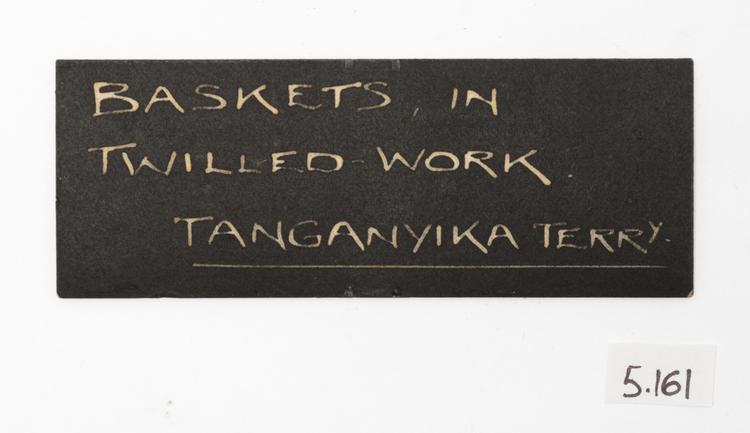 BASKETS IN
TWILLED-WORK.
TANGANYIKA TERRY.
5.161